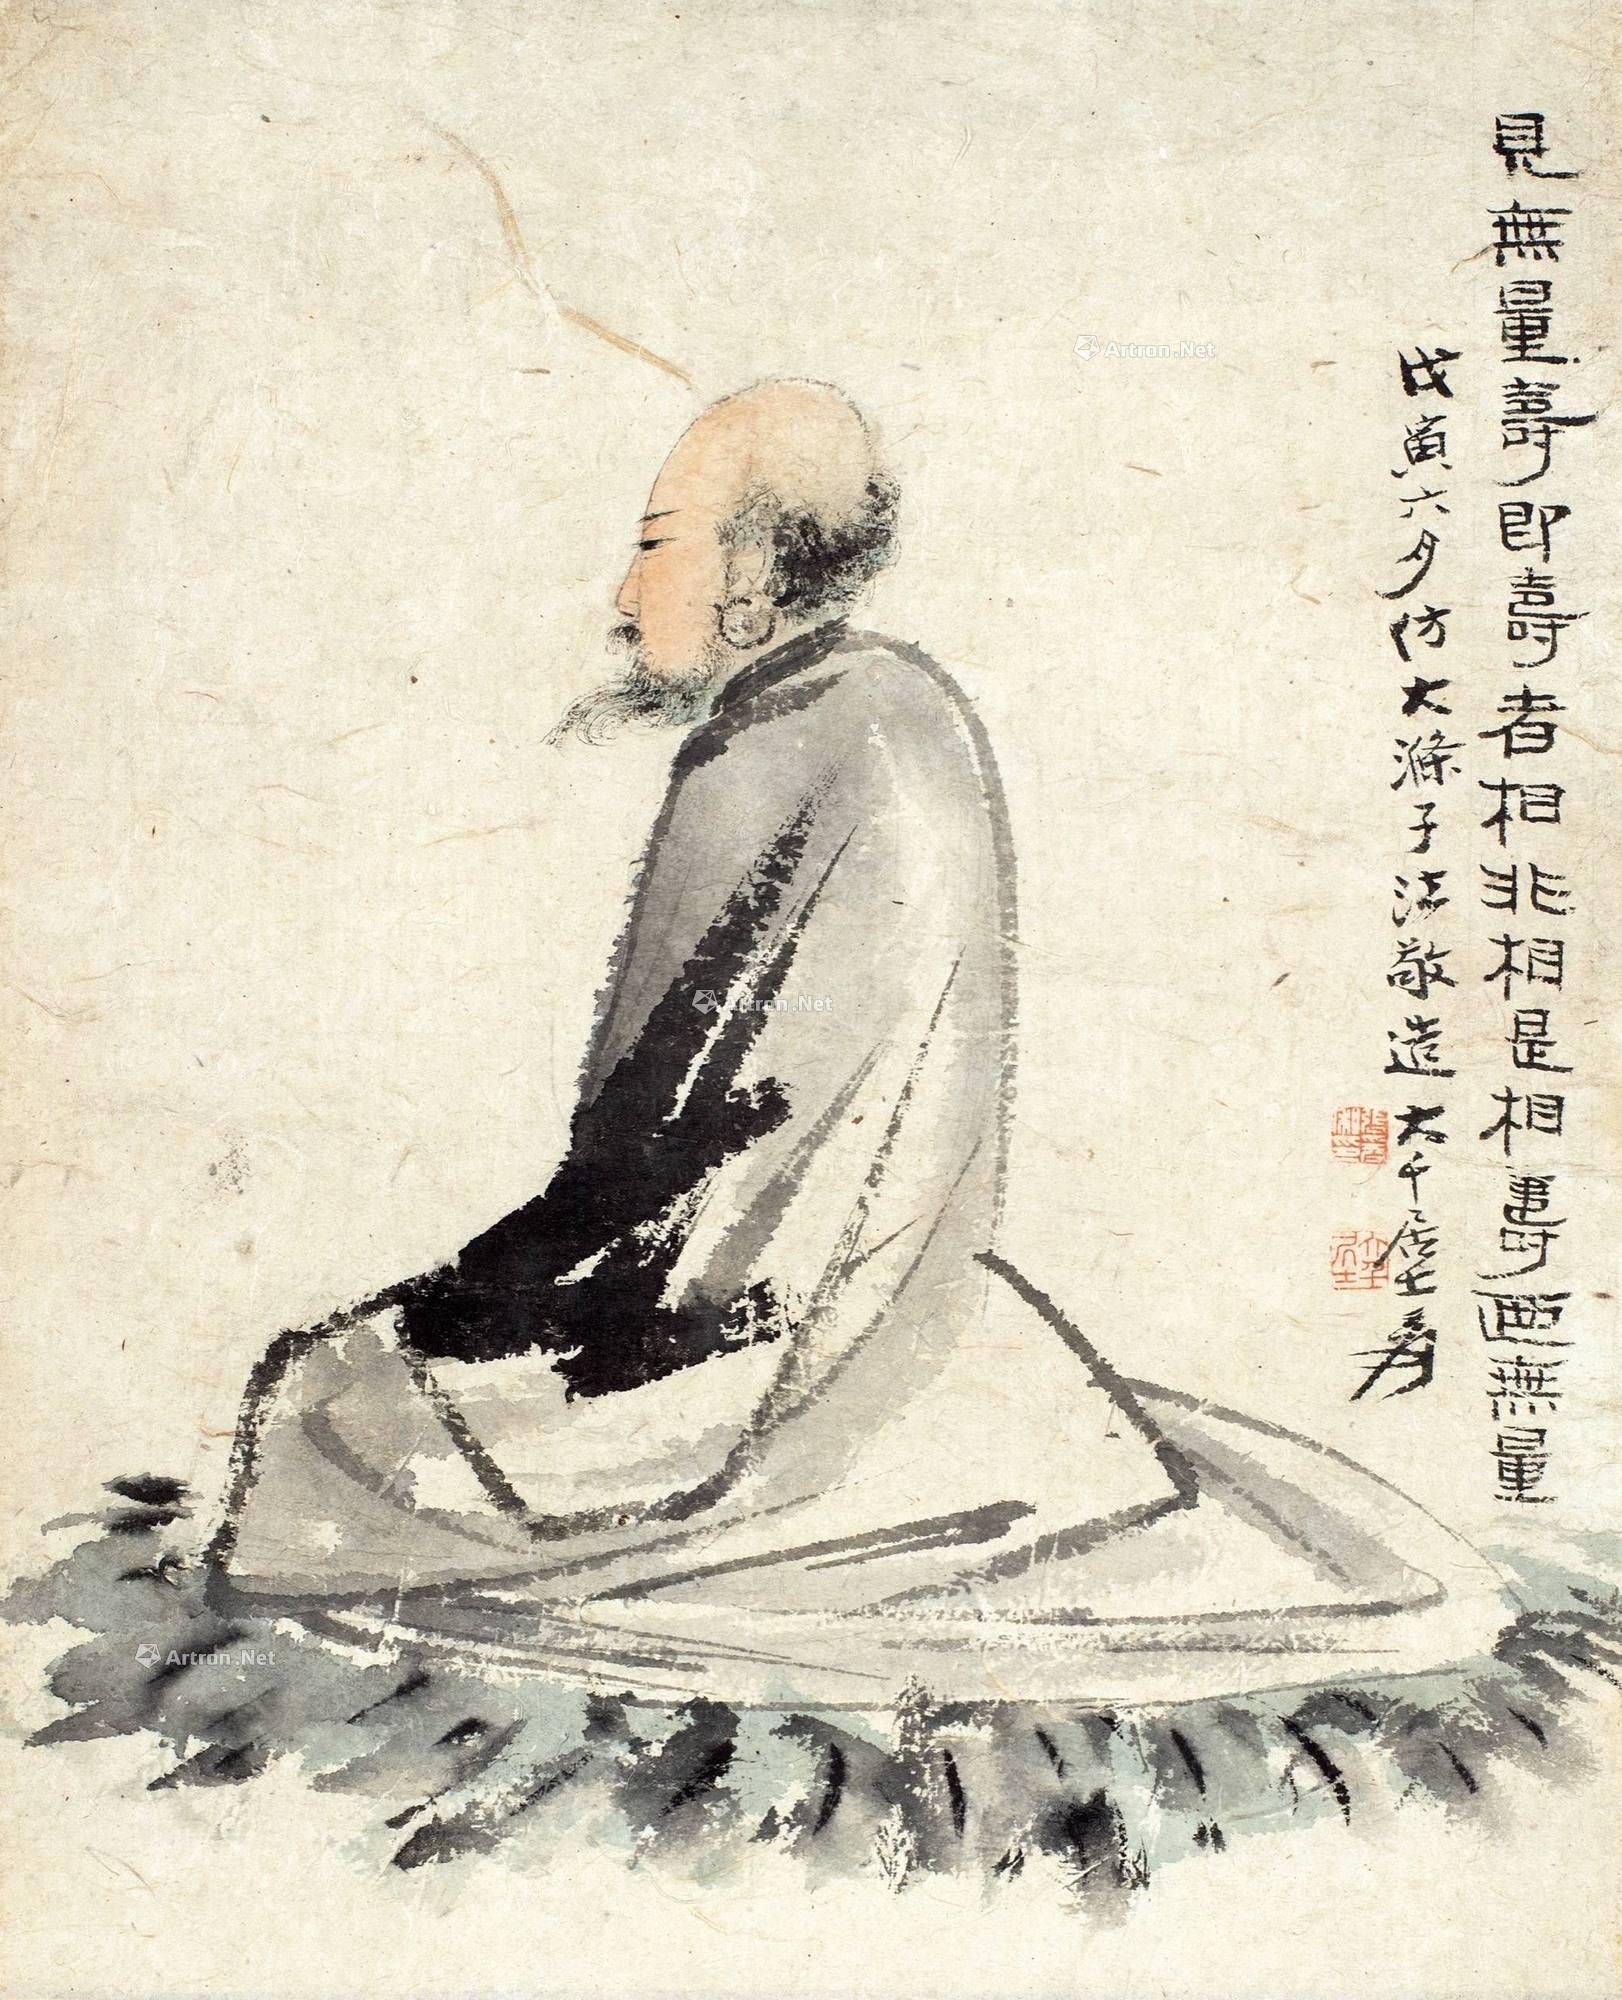 見無量壽即壽者相非相是相壽画無量
戊寅六月仿大滌子法敬造大千居士爰
Artron.Net
Artron.Net
Artron.Net